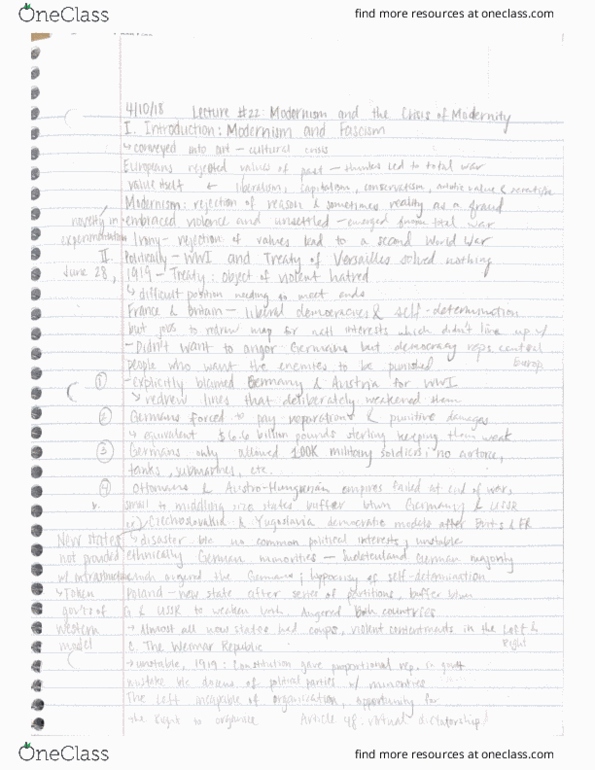 OneClass
find more resources at oneclass.com
4/10/18 Lecture #22: Modernism and the Crisis of Modernity
I. Introduction: Modernism and Fascism
↳ conveyed into art - cultural crisis
Europeans rejected values of past - led to total war
value itself ← liberalism, capitalism, conservatism,
Modernism: rejection of reason & sometimes reality as a fraud
novelty in embraced violence and unsettled - emerged from total war
experimentation Irony - rejection of values lead to a second World War
II. Politically - WWI and Treaty of Versailles solved nothing
June 28, 1919 - Treaty: object of violent hatred
↳ difficult position needing to meet ends
France & Britain - liberal democracies & self-determination
but jobs to redraw map for natl interests which didn't line up w/
- Didn't want to anger Germans but democracy reps central
people who want the enemies to be punished Europe
① - explicitly blamed Germany & Austria for WWI
↘ redrew lines that deliberately weakened them
② Germans forced to pay reparations & punitive damages
↳ equivalent $6.6 billion pounds sterling keeping them weak
③ Germans only allowed 100K military soldiers; no airforce,
tanks, submarines, etc.
④ Ottomans & Austro-Hungarian empires failed at end of war,
small to middling size states buffer btwn Germany & USSR
ex) Czechoslovakia & Yugoslavia democratic models after Brits & FR
New states ↳ disaster b/c no common political interests, unstable
not provided ethnically German minorities - Sudetenland German majority
w/ infrastructure which angered the Germans; hypocrisy of self-determination
↳ Token Poland - new state after series of partitions, buffer btwn
gov'ts of G & USSR to weaken both. Angered both countries
western → Almost all new states had coups, violent in the Left &
model Right
C. The Weimar Republic
→ unstable, 1919: Constitution gave proportional rep. so
unstable b/c dozens of political parties w/ minorities
The Left incapable of organization, opportunity for
the Right to organize Article 48 virtual dictatorship!
OneClass
find more resources at oneclass.com